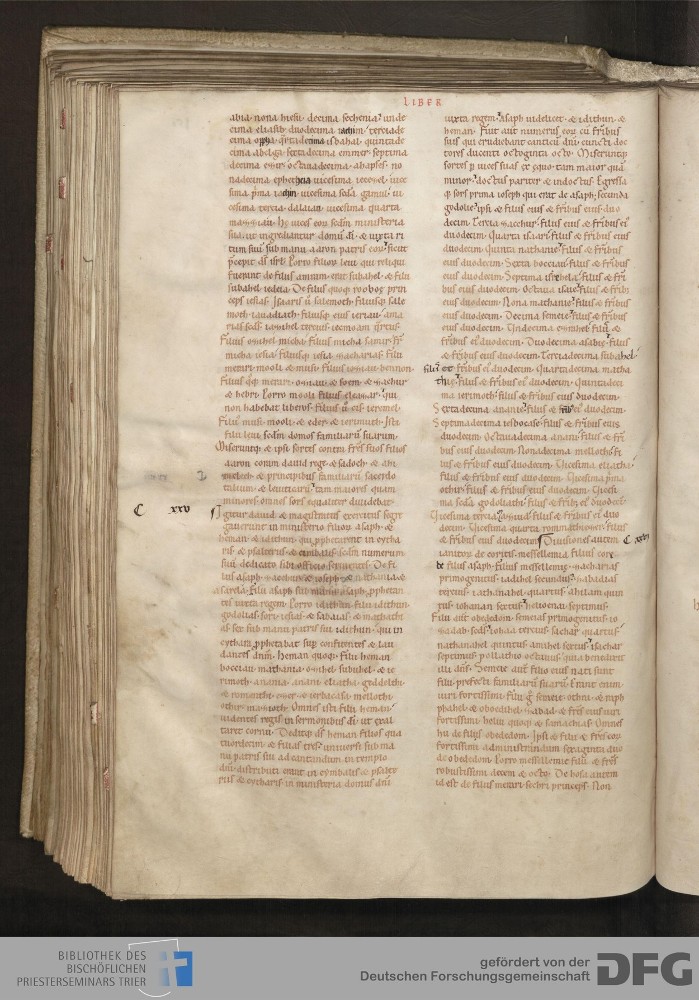 LIBER
abia nona hiesu decima sechenia unde
cima eliasib duodecima iachim terciade
cima oppha qrtadecima isbahal quintade
cima abelga sextadecima emmer septima
decima ezir octavadecima ahapses no
nadecima pheteia vicesima iezecel vice
sima pma iachin vicesima scda gamul vi
cesima tercia dalaiau vicesima quarta
maziau he vices eor scdm ministeria
sua ut ingrediantur domu di & iuxta ri
tum suu sub manu aaron patris eor sicut
pcepit dns isrl Porro filior levi qui reliqui
fuerunt de filiis amram erat subahel & filii
subahel iedeia De filiis quoq roobog prin
ceps iesias Isiaris u salemoth filiusq sale
moth iahadiath filiusq eius ieriau ama
rias scds iazihel tercius iecmoam qrtus
Filius ozihel micha filius micha samir fr
micha iesia filiusq iesia zacharias filii
merari mooli & musi filius ioziau bennon
Filius qq merari oziau & soem & zachur
& hebri Porro mooli filius eleazar qui
non habebat liberos filius u cis ieremel
Filii musi mooli & eder & ierimuth Isti
filii levi scdm domos familiaru suarum
Miserunt & ipsi sortes contra frs suos filios
aaron coram david rege & sadoch & ahi
melech & principibus familiaru sacerdo
talium & leviticaru tam maiores quam
minores omnes sors equaliter dividebat
C xxv
Igitur david & magistratus exercitus segre
gaverunt in ministerio filios asaph &
heman & idithun qui pphetarent in cytha
ris & psalteriis & cimbalis scdm numerum
suu dedicato sibi officio servientes De fi
liis asaph zacchur & ioseph & nathania &
asarela filii asaph sub manu asaph pphetan
tes iuxta regem Porro idithun filii idithun
godolias sori iesias & sabaias & mathathi
as sex sub manu patris sui idithun qui in
cythara pphetabat sup confitentes & lau
dantes dnm heman quoq filii heman
bocciau mathania ozihel subuhel & ie
rimoth anania anani eliatha geddelthi
& romemthi ezer & iesbacasa mellothi
othir mazioth Omnes isti filii heman
videntis regis in sermonibus di ut exal
taret cornu Deditq ds heman filios qua
tuordecim & filias tres universi sub ma
nu patris sui ad cantandum in templo
dni distributi erant in cymbalis & psalte
riis & cytharis in ministeria domus dni
iuxta regem asaph videlicet & idithun &
heman Fuit aut numerus eor cu fribus
suis qui erudiebant canticu dni cuncti doc
tores ducenti octoginta octo Miseruntq
sortes p vices suas ex equo tam maior qua
minor doctus pariter & indoctus Egressa
q sors prima ioseph qui erat de asaph secunda
godolie ipsi & filiis eius & fribus eius duo
decim Tercia zacchur filiis & fribus ei
duodecim Quarta isaari filiis & fribus eius
duodecim quinta nathanie filiis & fribus
eius duodecim Sexta bocciau filiis & fribus
eius duodecim Septima isrehela filiis & fri
bus eius duodecim Octava isaie filiis & frib
eius duodecim Nona mathanie filiis & fribus
eius duodecim Decima semeie filiis & fribus
eius duodecim Undecima ezrihel filiis &
fribus ei duodecim Duodecima asabie filiis
& fribus eius duodecim Terciadecima subahel
filiis & fribus ei duodecim Quartadecima matha
thie filiis & fribus ei duodecim Quintadeci
ma ierimoth filiis & fribus eius duodecim
Sextadecima ananie filiis & frib ei duodecim
Septimadecima iesbocase filiis & fribus eius
duodecim Octavadecima anani filiis & fri
bus eius duodecim Nonadecima mellothi fi
liis & fribus eius duodecim Vicesima eliatha
filiis & fribus eius duodecim Vicesima pma
othir filiis & fribus eius duodecim Vicesi
ma scda godoliathi filiis & frib ei duodeci
Vicesima tercia filiis & fribus ei duo
decim Vicesima quarta romimathiezer filiis
& fribus eius duodecim Divisiones autem
C xxvi
ianitor de coritis mesellemia filius core
de filiis asaph Filii mesellemie zacharias
primogenitus iadihel secundus zabadias
tercius iathanahel quartus ahilam quin
tus iohanan sextus helioena septimus
Filii aut obededom semeias primogenitus io
zabab scds iohaa tercius sachar quartus
nathanahel quintus amihel sextus isachar
septimus pollathio octavus quia benedixit
illi dns Semeie aut filio eius nati sunt
filii prefecti familiaru suaru Erant enim
viri fortissimi filii g semeie othni & raph
phahel & obedihel zabad & frs eius viri
fortissimi heliu quoq & samachias Omnes
hii de filiis obededom Ipsi & filii & fres eor
fortissimi ad ministrandum sexaginta duo
de obededom Porro mesellemie filii & fres
robustissimi decem & octo De hosa autem
id est de filiis merari semri princeps Non
BIBLIOTHEK DES
BISCHÖFLICHEN
PRIESTERSEMINARS TRIER
gefördert von der
Deutschen Forschungsgemeinschaft
DFG